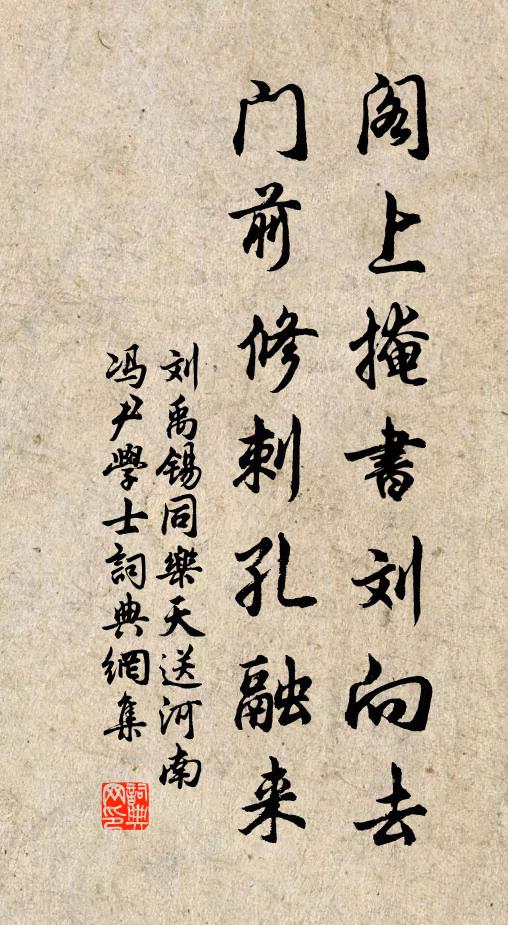 阁上掩书刘向去
门前修刺孔融来
刘禹锡同樂天送河南
冯尹學士詞典網集
詞典网印